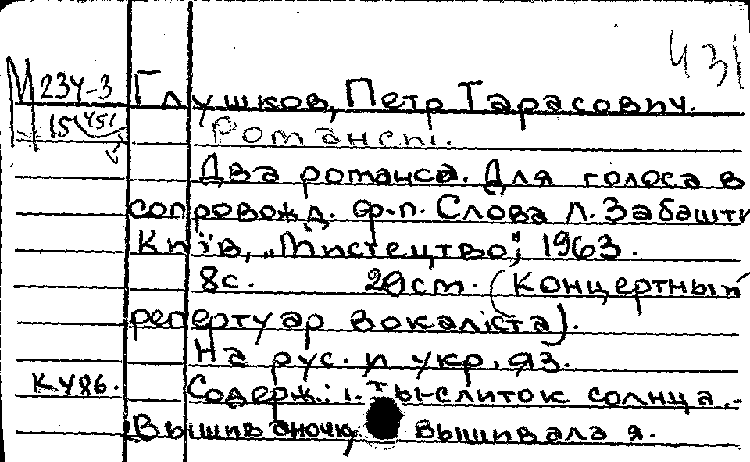 431
М 234-3 Глушков, Петр Тарасович.
15451 Романсы.
Два романса. Для голоса в
сопровожд. ф-п. Слова Л. Забашти
Київ, „Мистецтво", 1963.
8с. 29см. (Концертный
репертуар вокаліста).
На рус. и укр. яз.
КУ86. Содерж.: 1. Ты слиток солнца.-
Вышиваночку вышивала я.